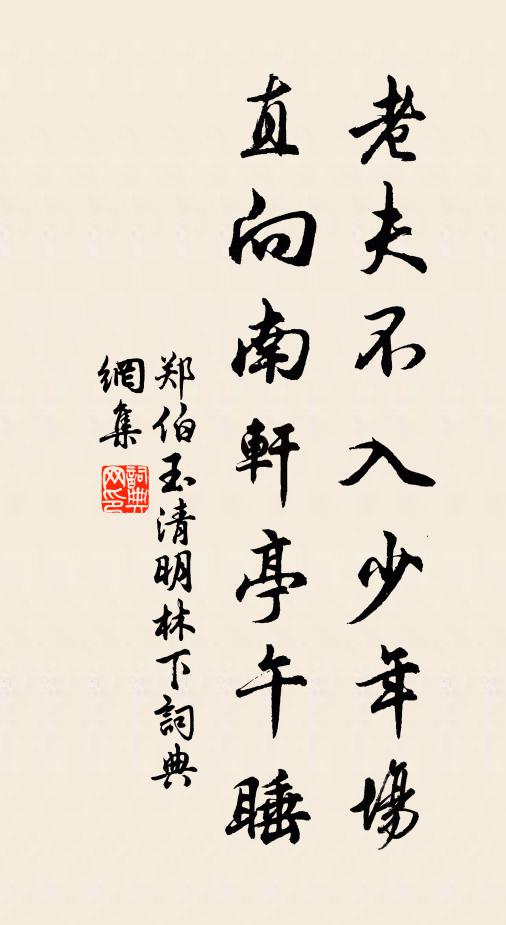 老夫不入少年場
直向南軒亭午睡
郑伯玉清明林下詞典
網集
詞典
网印